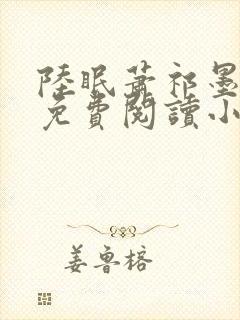 陸眠蕭祁墨
免費閱讀小
姜魯榕